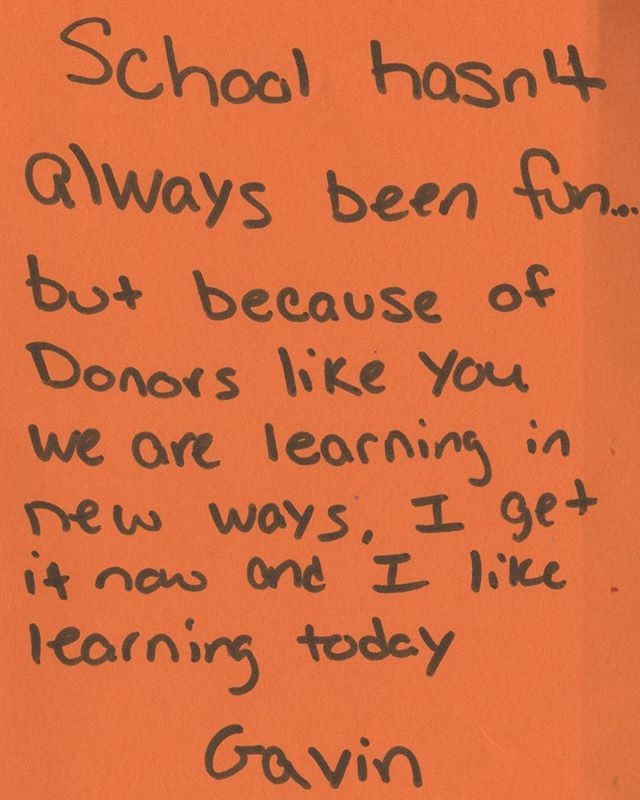 School hasn't
always been fun...
but because of
Donors like you
we are learning in
new ways. I get
it now and I like
learning today
Gavin